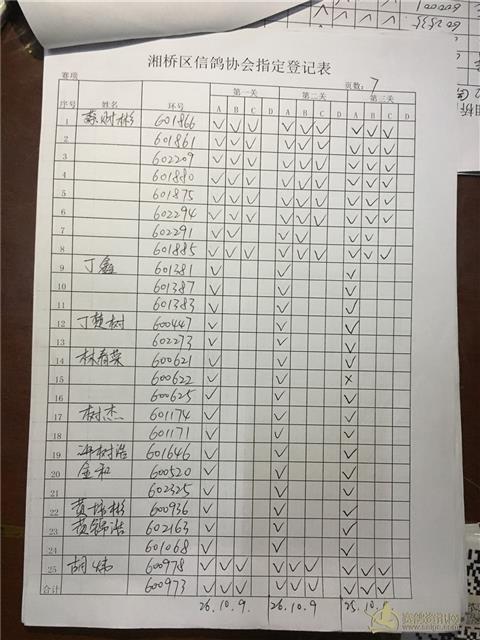 湘桥区信鸽协会指定登记表
赛项 页数: 7
序号 姓名 环号 第一关 第二关 第三关
A B C D A B C D A B C D
1 601866 ✓ ✓ ✓ ✓ ✓ ✓ ✓ ✓ ✓
2 601861 ✓ ✓ ✓ ✓ ✓ ✓ ✓ ✓ ✓
3 602209 ✓ ✓ ✓ ✓ ✓ ✓ ✓ ✓ ✓
4 601880 ✓ ✓ ✓ ✓ ✓ ✓ ✓ ✓ ✓
5 601875 ✓ ✓ ✓ ✓ ✓ ✓ ✓ ✓ ✓
6 602294 ✓ ✓ ✓ ✓ ✓ ✓ ✓ ✓ ✓
7 602291 ✓ ✓ ✓ ✓ ✓ ✓
8 601885 ✓ ✓ ✓ ✓ ✓ ✓ ✓ ✓ ✓
9 丁鑫 601381 ✓ ✓ ✓
10 601387 ✓ ✓ ✓
11 601383 ✓ ✓ ✓
12 丁楚树 600447 ✓ ✓ ✓
13 602273 ✓ ✓ ✓
14 林春荣 600621 ✓ ✓ ✓
15 600622 ✓ ✓ ×
16 600625 ✓ ✓ ✓
17 树杰 601174 ✓ ✓ ✓
18 601171 ✓ ✓ ✓
19 树浩 601646 ✓ ✓ ✓
20 金和 600520 ✓ ✓ ✓
21 602325 ✓ ✓ ✓
22 黄培彬 600936 ✓ ✓ ✓
23 黄锦浩 602163 ✓ ✓ ✓
24 601068 ✓ ✓ ✓
25 胡炜 600978 ✓ ✓ ✓ ✓ ✓ ✓ ✓ ✓ ✓
合计 600973 ✓ ✓ ✓ ✓ ✓ ✓ ✓ ✓ ✓
26. 10. 9. 26. 10. 9 25. 10.